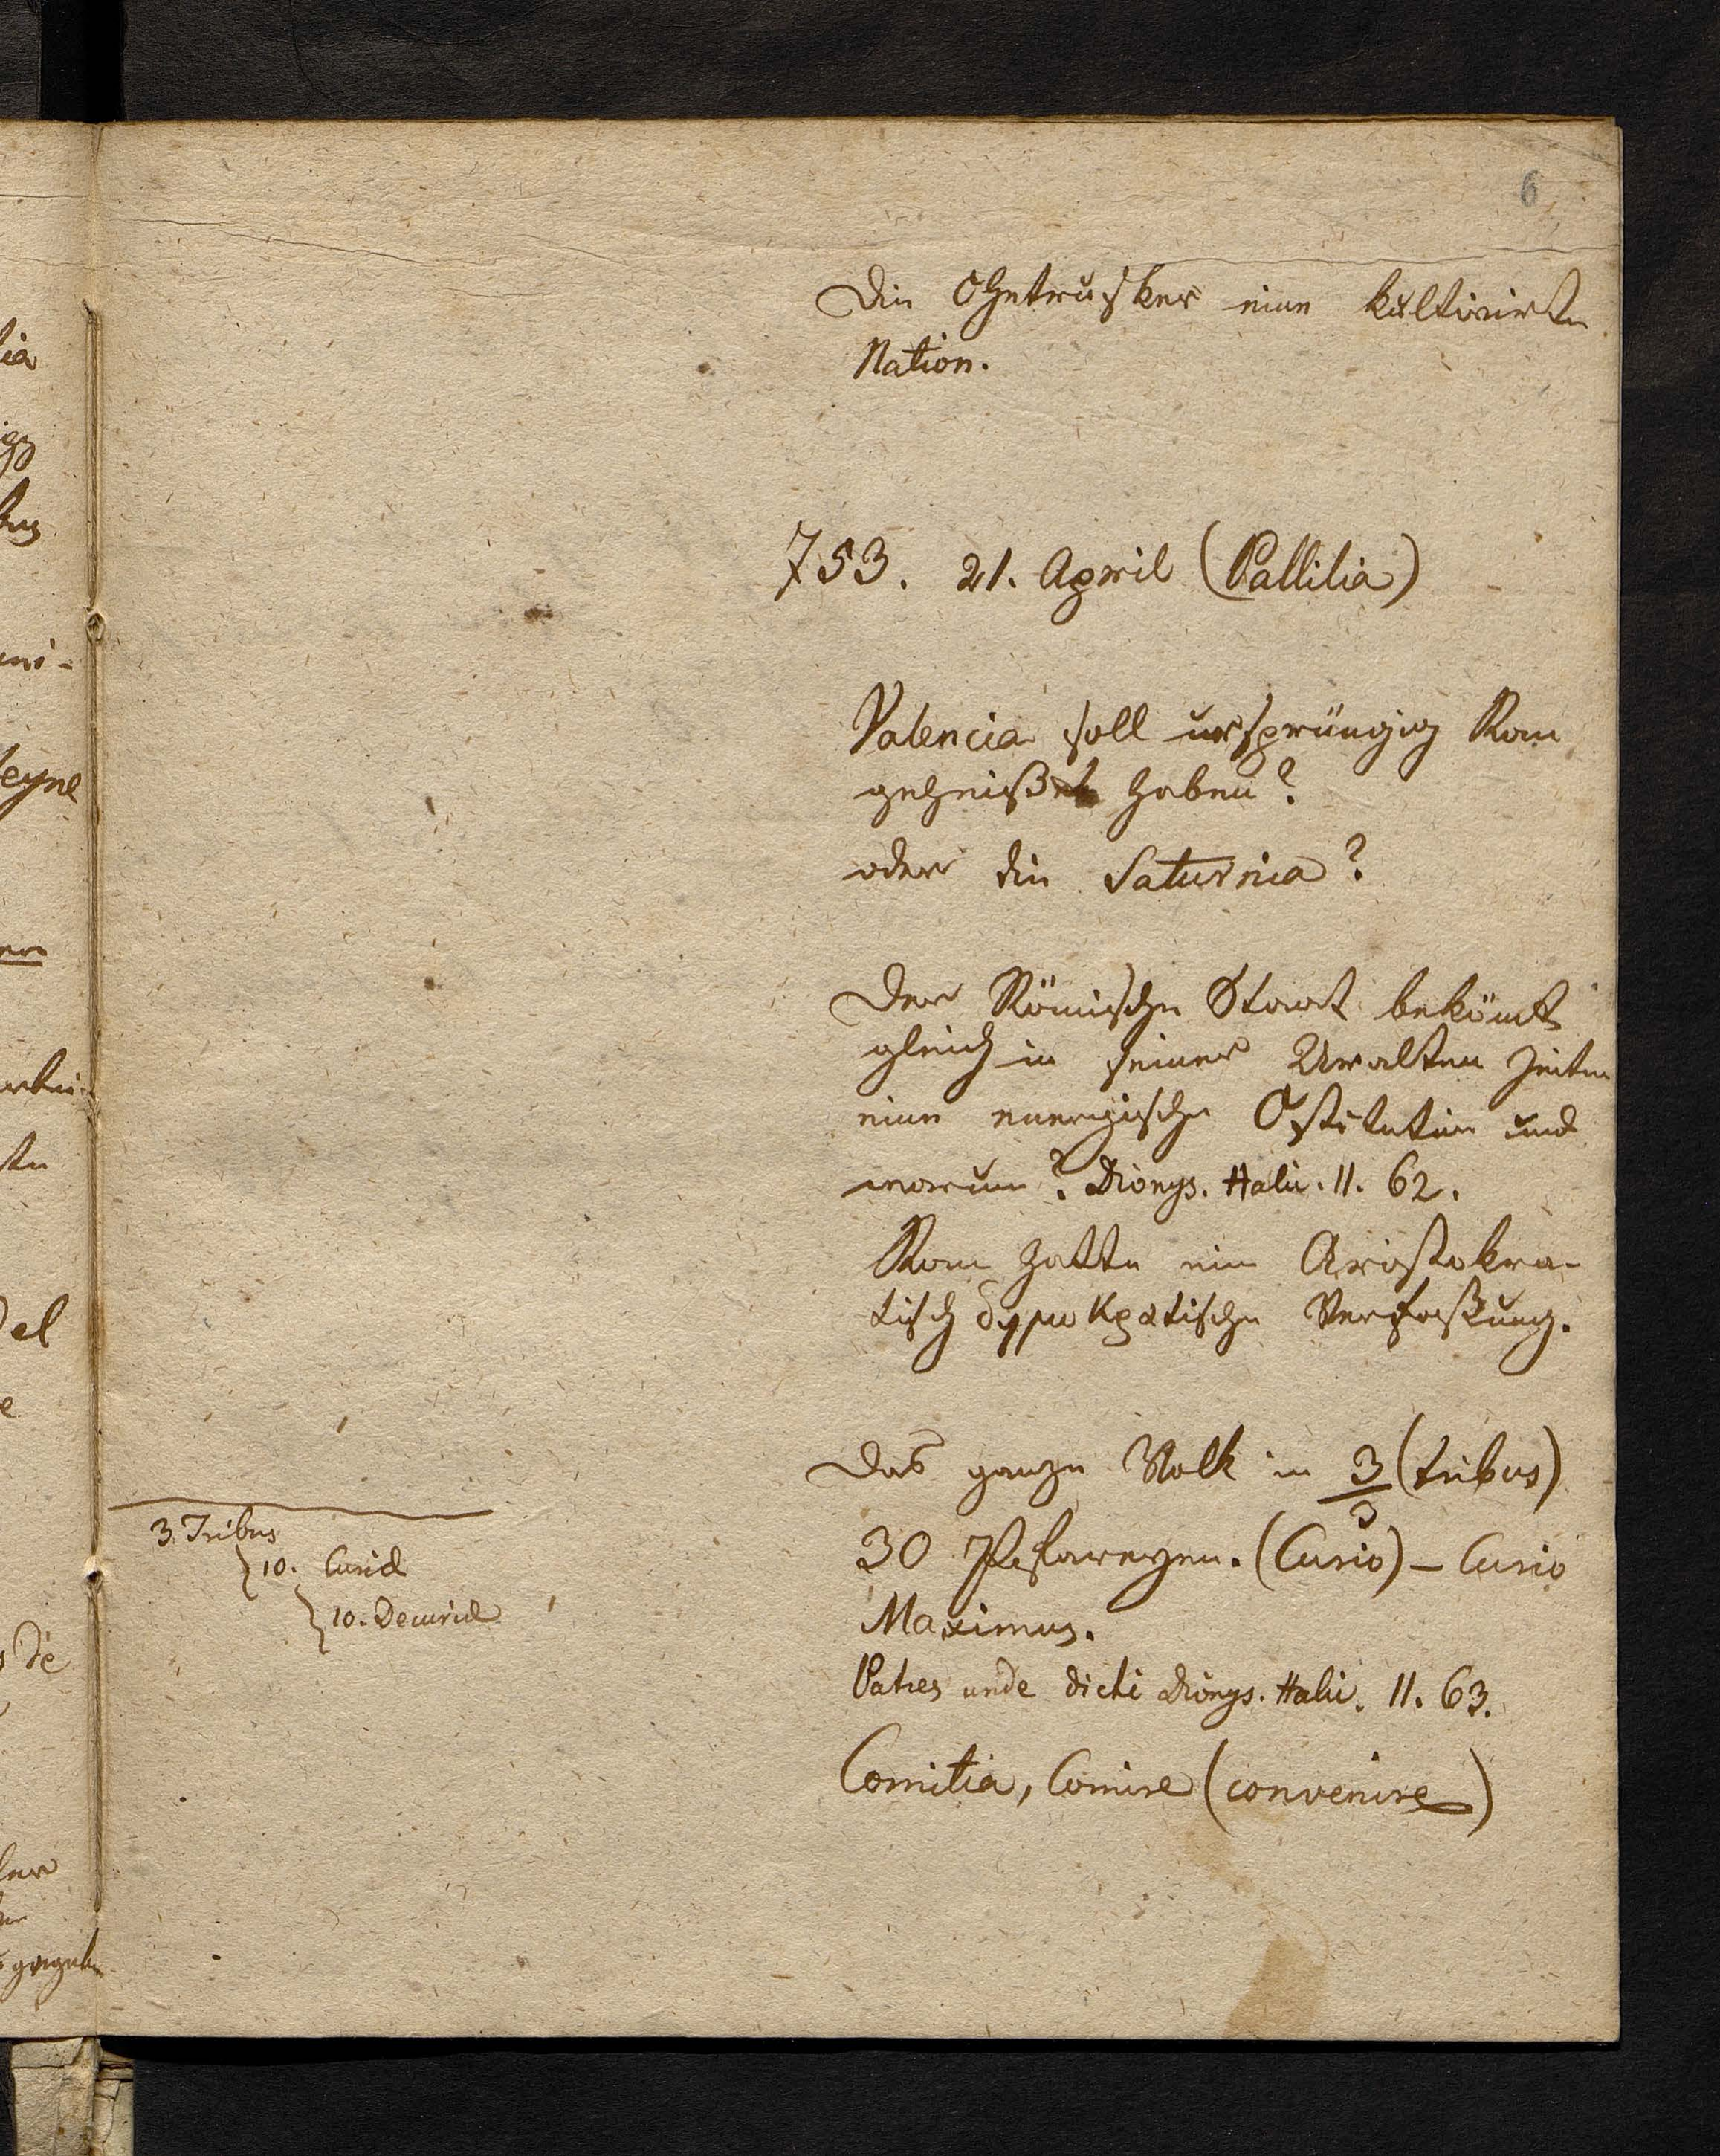 6
Die Ohetrusker eine kultivirte
Nation.
753. 21. April (Pallilia)
Valencia soll ursprüngig Rom
geheißen haben?
oder die Saturnia?
Der Römische Staat bekömt
gleich in seiner Uralten Zeiten
eine energische und
morum? Dionys. Halic. II. 62.
Rom hatte eine Aristokra-
tisch δημοκρατische Verfaßung.
Das ganze Volk in 3 (tribus)
3
30 Pfarreyen. (Curio) – Curio
Maximus.
Patres unde dicti Dionys. Halic. II. 63.
Comitia, Comire (convenire)
3. Tribus
10. Curiæ
10. Decuriæ